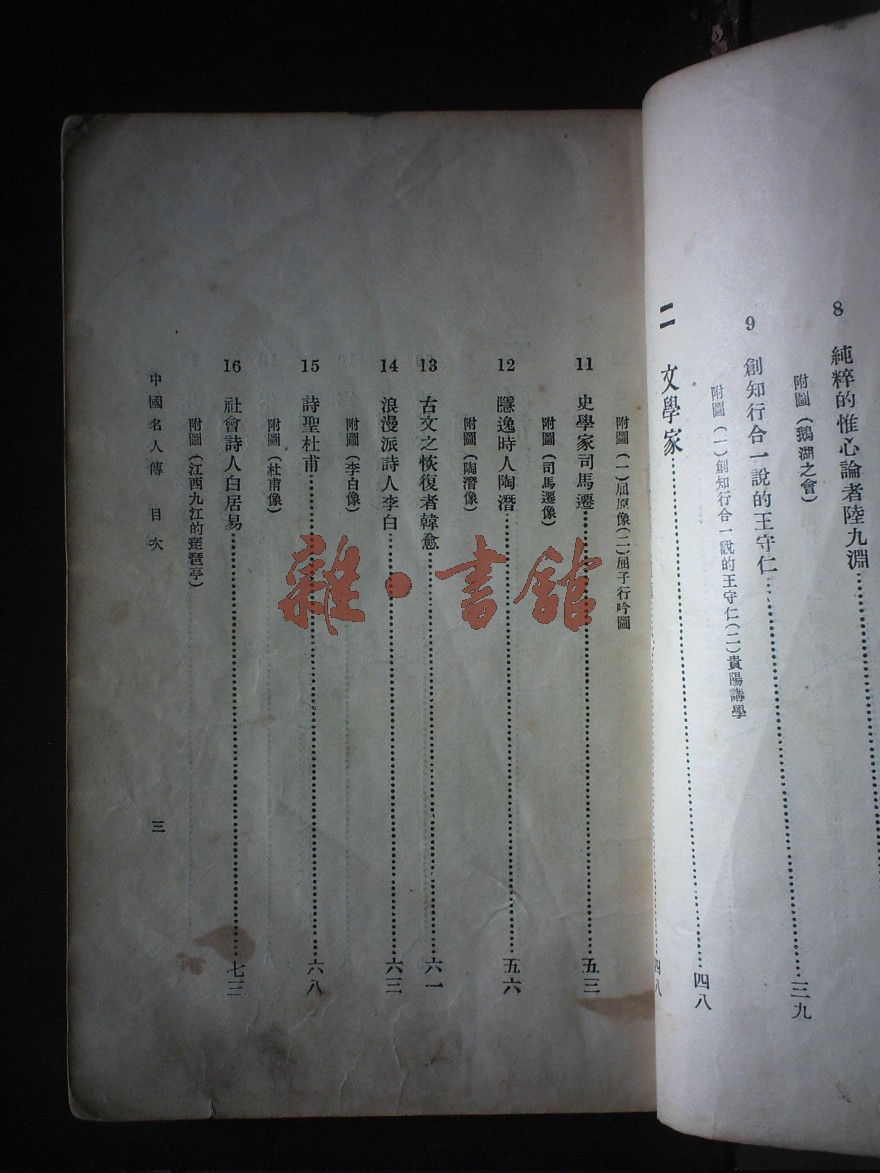 8 純粹的惟心論者陸九淵
附圖(鵝湖之會)
9 創知行合一說的王守仁……三九
附圖(一)創知行合一說的王守仁(二)貴陽講學
二 文學家……四八
四八
附圖(一)屈原像(二)屈子行吟圖
11 史學家司馬遷……五三
附圖(司馬遷像)
12 隱逸時人陶潛……五六
附圖(陶潛像)
13 古文之恢復者韓愈……六一
14 浪漫派詩人李白……六三
附圖(李白像)
15 詩聖杜甫……六八
附圖(杜甫像)
16 社會詩人白居易……七三
附圖(江西九江的琵琶亭)
中國名人傳 目次
三
雜·書館